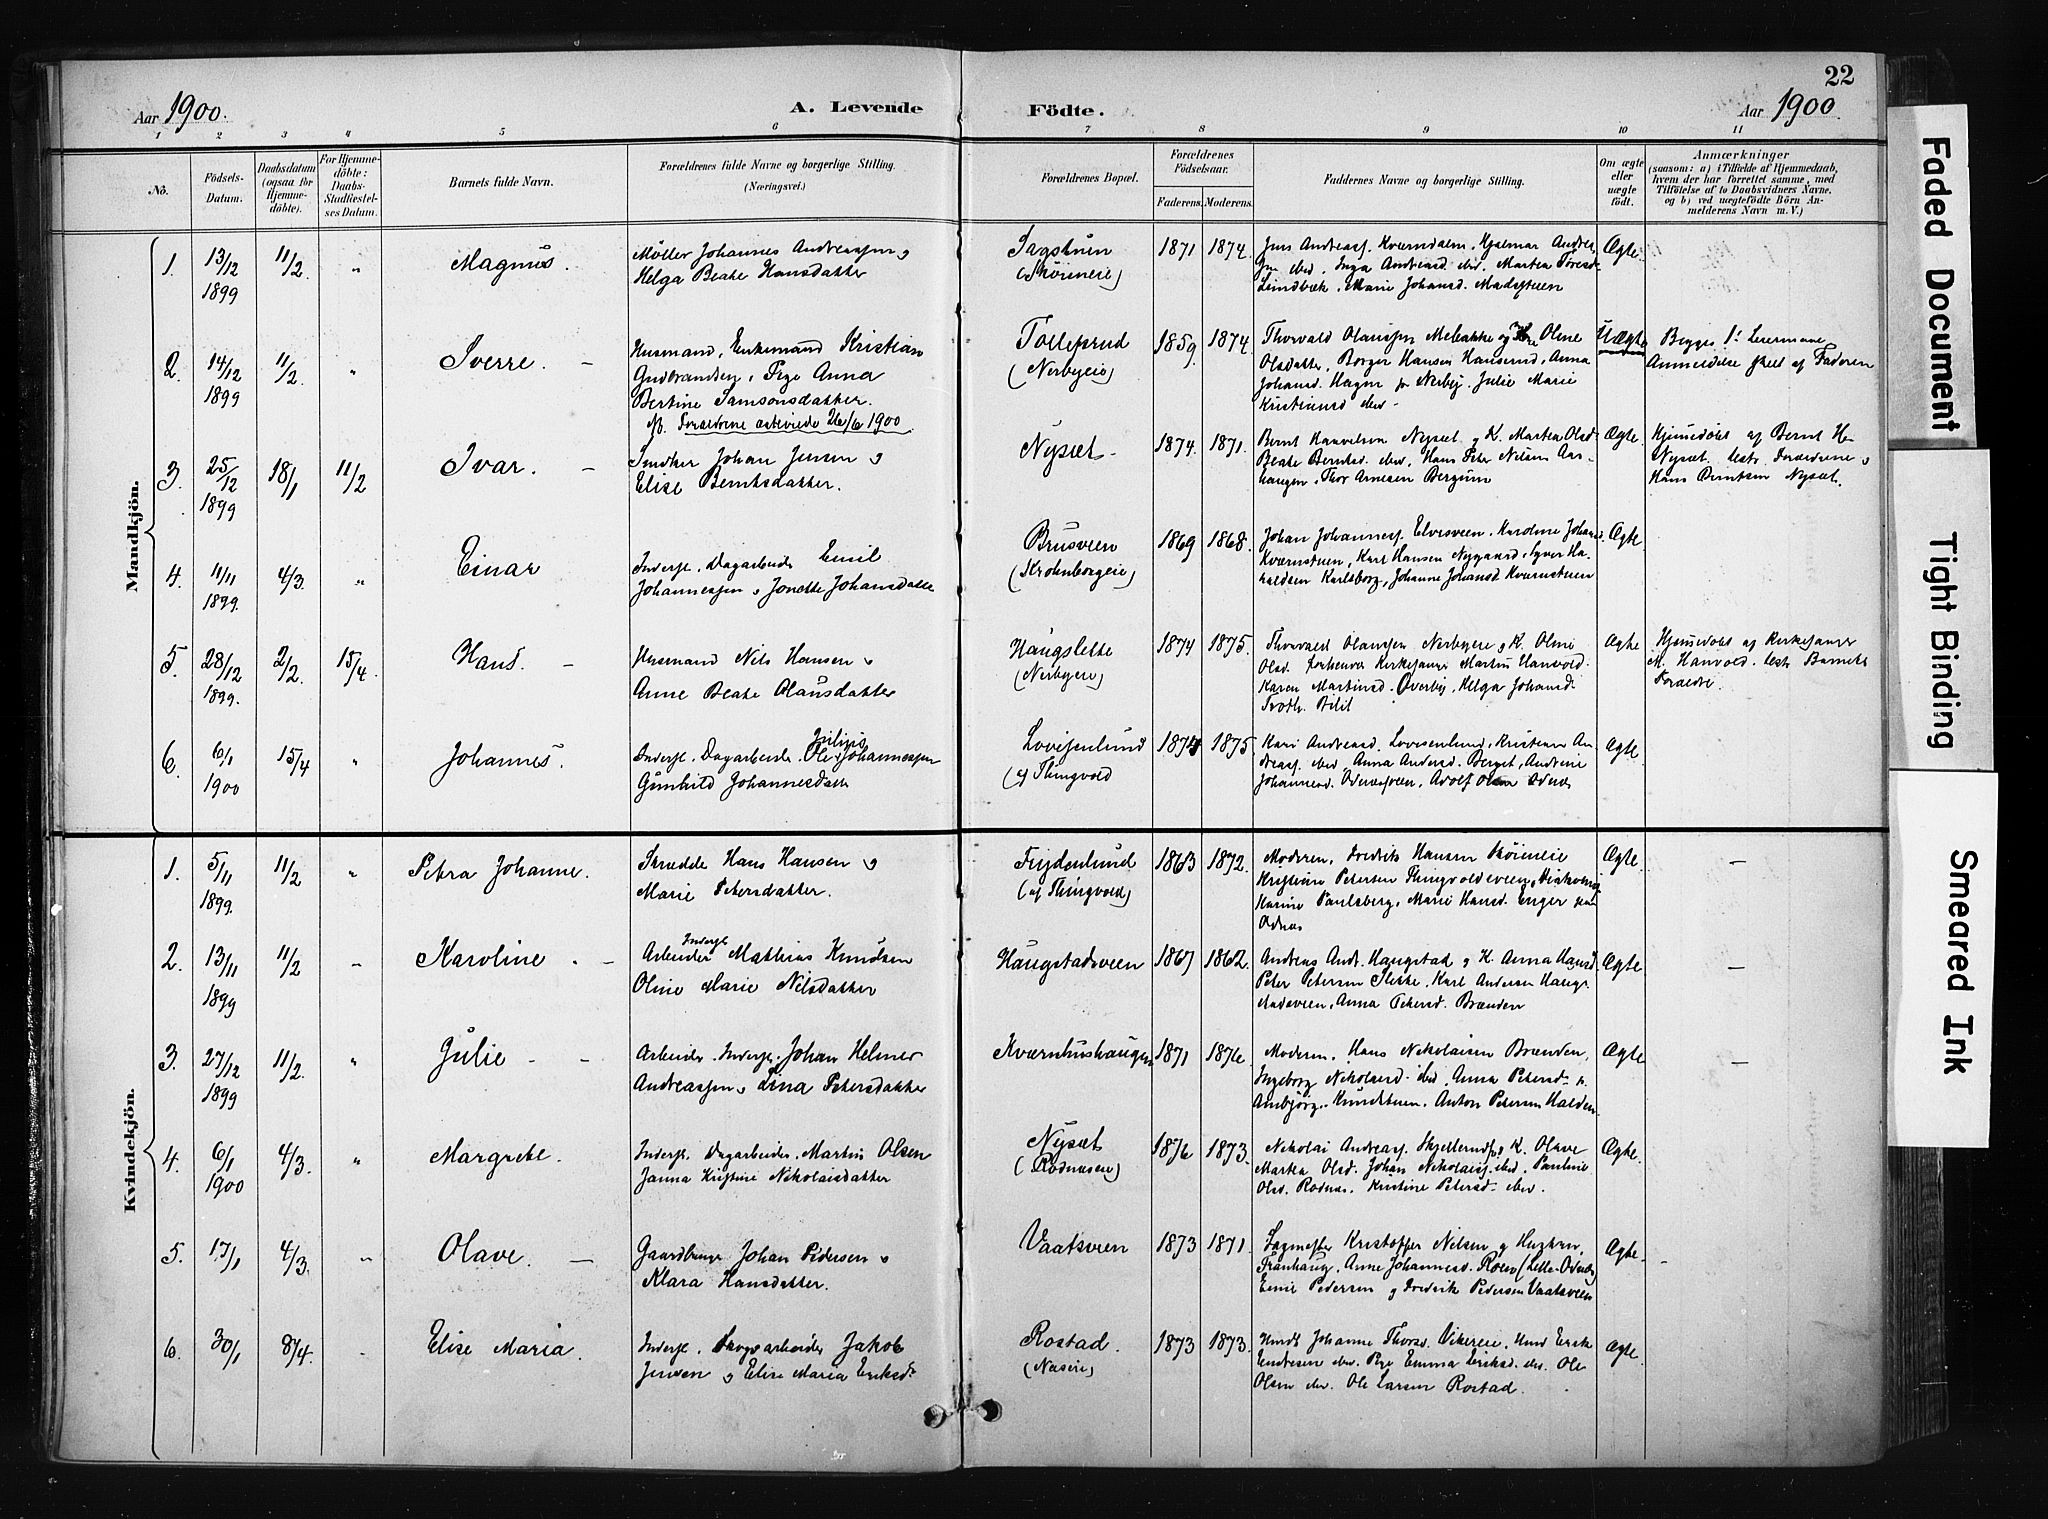 22
Aar 1900.
A. Levende
Födte.
Aar 1900
1 2 3 4 5 6 7 8 9 10 11
No.
Födsels-
Datum.
Daabsdatum
(ogsaa for
Hjemme-
döbte).
For Hjemme-
döbte:
Daabs-
Stadfæstel-
ses Datum.
Barnets fulde Navn.
Forældrenes fulde Navne og borgerlige Stilling.
(Næringsvei.)
Forældrenes Bopæl.
Forældrenes
Födselsaar.
Faderens. Moderens.
Faddernes Navne og borgerlige Stilling.
Om ægte
eller
uægte
födt.
Anmærkninger
(saasom: a) i Tilfælde af Hjemmedaab,
hvem der har forrettet samme, med
Tilföielse af to Daabsvidners Navne,
og b) ved uægtefödte Börn An-
melderens Navn m. V.)
Mandkjön.
1. 13/12 1899 11/2. " Magnus.
Möller Johannes Andreassen og
Helga Beate Hansdatter
Sagstuen
(Sköieneie)
1871 1874.
Jens Andreass. Kværndalen, Hjalmar
ibid. Inga Andreasd. ibid. Martea
Lundbæk, Marie Johansd.
Ægte.
2. 14/12 1899 11/2. " Sverre. –
Husmand, Enkemand Kristian
Gudbrandsen, Pige Anna
Bertine Samsonsdatter.
NB. Forældrene ægteviede 26/6 1900.
Tolleprud
(Nerbyeie)
1859. 1874.
Thorvald Olaussen
Olsdatter, Borger Hansen Hauvund, Anna
Johansd. Hagen, Nerby, Julie Marie
Kristiansd. ibid.
Uægte
Begges 1. Leiermaal
Anmeldelse skeet af Faderen
3. 25/12 1899 18/1 11/2 Ivar. –
Snedker Johan Jensen og
Elise Berntsdatter.
Nysæt
1874. 1871.
Bernt Haavelsen Nysæt og K. Martea Olsd.
Beate Berntsd. ibid., Hans Peter Nilsen Aas-
haugen, Thor Arnesen Bergum
Ægte
Hjemmedöbt af Bernt H.
Nysæt. test. Forældrene og
Hans Berntsen Nysæt.
4. 11/11 1899. 4/3. " Einar
Inderst, Dagarbeider Emil
Johannessen og Jonette Johansdatter
Brusveen
(Krohnborgeie)
1869 1868.
Johan Johanness. Elvesveen, Karoline Johansd.
Kværnstuen, Karl Hansen Nygaard, Syver Ha-
raldsen Karlsborg, Johanne Johansd. Kværnstuen
Ægte
5. 28/12 1899. 2/2. 15/4. Hans. –
Husmand Nils Hansen og
Anne Beate Olausdatter
Haugslette
(Nerbyeie)
1874 1875.
Thorvald Olaussen Nerbyeie og K. Oline
Olsd. forhenv. Kirkesanger Martin Hanvold.
Karen Martinsd. Överby, Helga Johansd.
Bilit
Ægte
Hjemmedöbt af Kirkesanger
M. Hanvold. test. Barnets
Forældre.
6. 6/1 1900 15/4 " Johannes.
Inderst. Dagarbeider. Ole Julius Johannessen
Gunhild Johannesdatter
Lovisenlund
(af Thingvold
1874 1875.
Kari Andreasd. Lovisenlund, Kristian An-
dreass. ibid., Anna Andersd. Berget, Andrine
Johannesd. Odnæsveen, Adolf Olsen Odnæs
Ægte
Kvindekjön.
1. 5/11 1899. 11/2 " Petra Johanne.
Skrædder Hans Hansen og
Marie Petersdatter.
Frydenlund
(af Thingvold)
1863 1872.
Moderen, Fredrik Hansen Sköieneie
Kristine Petersen Thingvoldsveen,
Karine Paulsberg, Marie Hansd. Enger
Odnæs
Ægte –
2. 13/11 1899 11/2 – Karoline –
Arbeider Inderst Mathias Knudsen
Oline Marie Nilsdatter
Haugstadsveen
1867 1862.
Andreas Andr. Haugstad og K. Anna Hansd.
Peter Petersen Slette, Karl Andersen Haug-
stadsveen, Anna Petersd. Brænden
Ægte –
3. 27/12 1899 11/2. " Julie –
Arbeider. Inderst. Johan Helmer
Andreassen og Lina Petersdatter
Kværnhushaugen
1871 1876.
Moderen, Hans Nikolaisen Brænden,
Ingeborg Nikolaisd. ibid., Anna Petersd.
Knudstuen, Anton Petersen Halden
Ægte –
4. 6/1 1900 4/3. " Margrete.
Inderst. Dagarbeider. Martin Olsen
Janna Kristine Nikolaisdatter
Nysæt
(Rodnæseie)
1876 1873.
Nikolai Andreass. og K. Olave
Martea Olsd. Johan Nikolaiss. ibid. Pauline
Olsd. Rodnæs, Kristine Petersd. ibid.
Ægte.
5. 17/1 4/3. " Olave. –
Gaardbruger Johan Pedersen og
Klara Hansdatter.
Vaatsveen
1873 1871.
Sagmester Kristoffer Nilsen og Hustru,
Franhaug, Anne Johannesd. Roen (Lille-Odnæs)
Emil Pedersen og Fredrik Pedersen Vaatsveen
Ægte –
6. 30/1 8/4. Elise Maria.
Inderst. Skovarbeider Jakob
Jensen og Elise Maria Eriksd.
Rostad.
(Næseie)
1873 1873.
Johanne Thorsd. Vikereie, Erik
ibid. Pige Emma Eriksd. ibid. Ole
Olsen ibid. Ole Larsen Rostad.
Ægte
Faded Document
Tight Binding
Smeared Ink